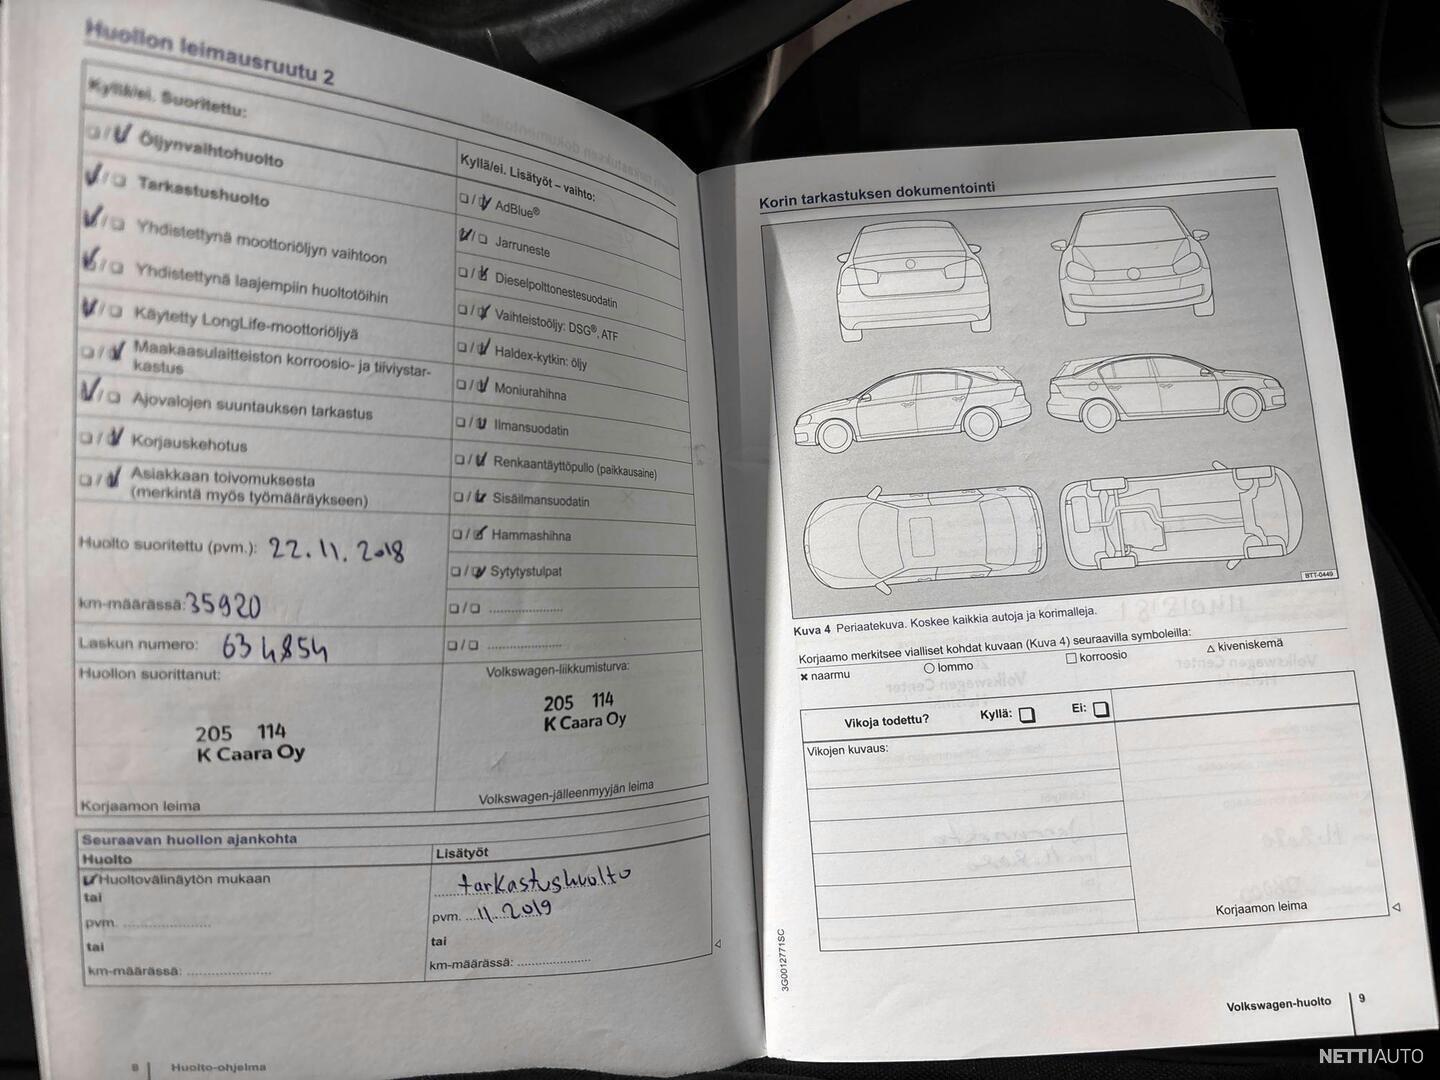 Huollon leimausruutu 2
Kyllä/ei. Suoritettu:
❏ / ✓ Öljynvaihtohuolto
✓ / ❏ Tarkastushuolto
✓ / ❏ Yhdistettynä moottoriöljyn vaihtoon
✓ / ❏ Yhdistettynä laajempiin huoltotöihin
✓ / ❏ Käytetty LongLife-moottoriöljyä
❏ / ✓ Maakaasulaitteiston korroosio- ja tiiviystar-
kastus
✓ / ❏ Ajovalojen suuntauksen tarkastus
❏ / ✓ Korjauskehotus
❏ / ✓ Asiakkaan toivomuksesta
(merkintä myös työmääräykseen)
Huolto suoritettu (pvm.): 22.11.2018
km-määrässä: 35920
Laskun numero: 634854
Huollon suorittanut:
205 114
K Caara Oy
Korjaamon leima
Kyllä/ei. Lisätyöt – vaihto:
❏ / ✓ AdBlue®
✓ / ❏ Jarruneste
❏ / ✓ Dieselpolttonestesuodatin
❏ / ✓ Vaihteistoöljy: DSG®, ATF
❏ / ✓ Haldex-kytkin: öljy
❏ / ✓ Moniurahihna
❏ / ✓ Ilmansuodatin
❏ / ✓ Renkaantäyttöpullo (paikkausaine)
❏ / ✓ Sisäilmansuodatin
❏ / ✓ Hammashihna
❏ / ✓ Sytytystulpat
❏ / ❏ .....................
❏ / ❏ .....................
Volkswagen-liikkumisturva:
205 114
K Caara Oy
Volkswagen-jälleenmyyjän leima
Seuraavan huollon ajankohta
Huolto
✓ Huoltovälinäytön mukaan
tai
pvm. .....................
tai
km-määrässä: .....................
Lisätyöt
tarkastushuolto
pvm. 11.2019
tai
km-määrässä: .....................
8 Huolto-ohjelma
Korin tarkastuksen dokumentointi
BTT-0449
Kuva 4 Periaatekuva. Koskee kaikkia autoja ja korimalleja.
Korjaamo merkitsee vialliset kohdat kuvaan (Kuva 4) seuraavilla symboleilla:
× naarmu ○ lommo □ korroosio △ kiveniskemä
Vikoja todettu? Kyllä: ❏ Ei: ❏
Vikojen kuvaus:
Korjaamon leima
3G0012771SC
Volkswagen-huolto 9
NETTIAUTO